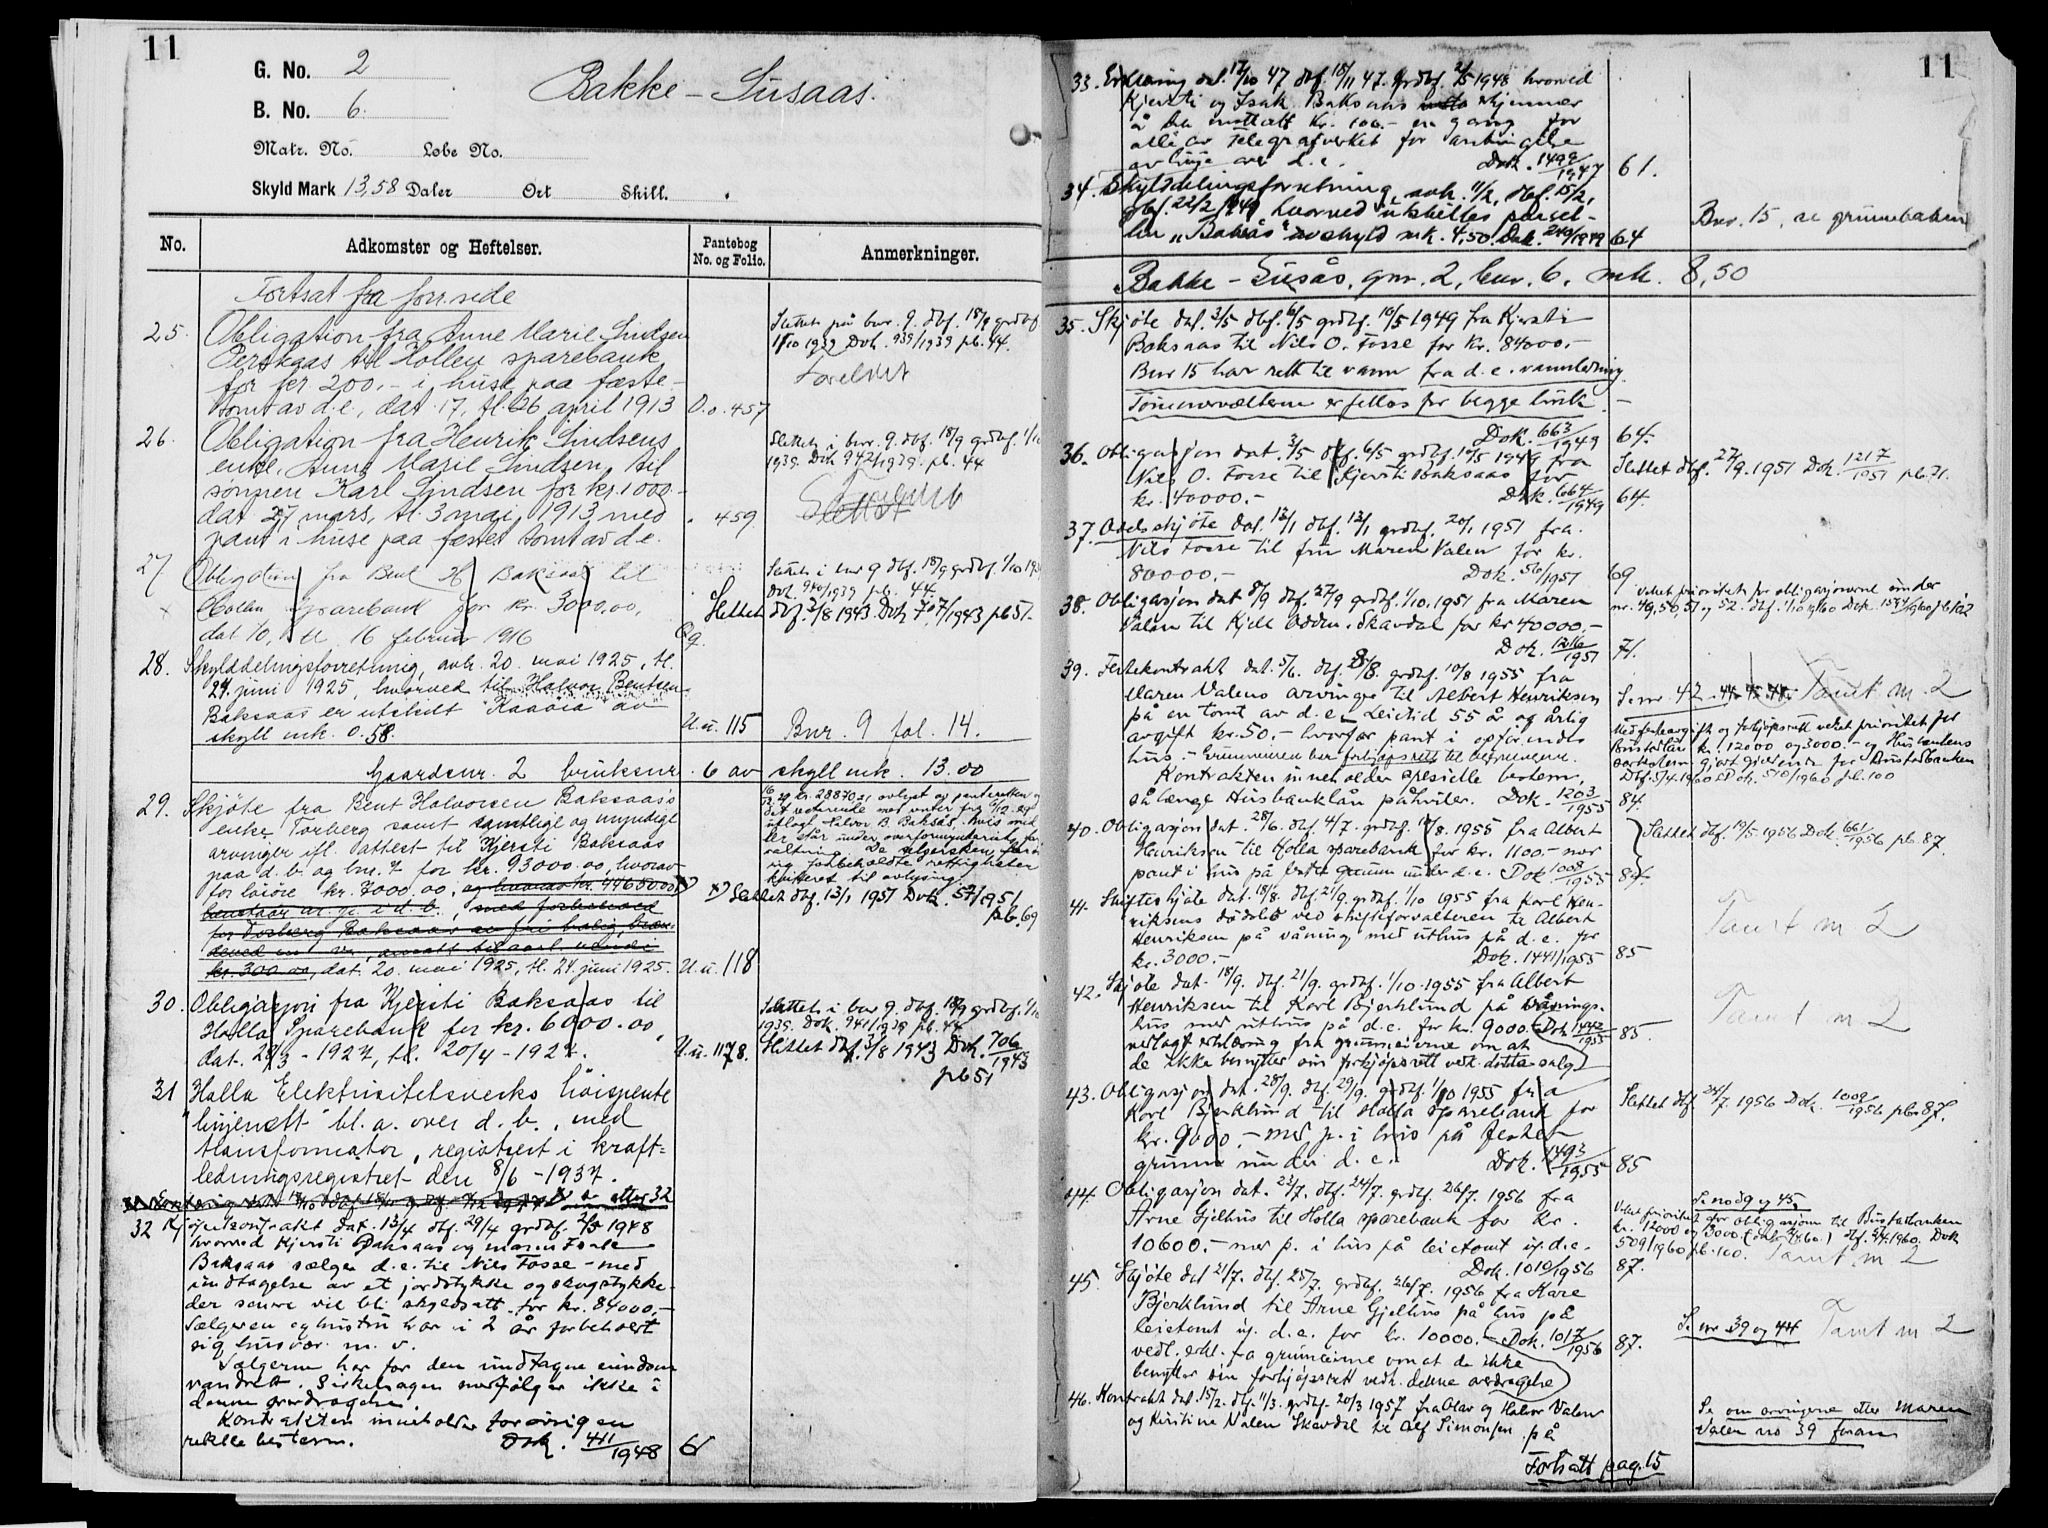 11
G. No. 2
B. No. 6.
Bakke - Susaas.
Matr. No. Løbe No.
Skyld Mark 13,58 Daler Ort Skill.
No. Adkomster og Heftelser. Pantebog No. og Folio. Anmerkninger.
Fortsat fra forr. side
25. Obligation fra Anne Marie Lindsen
til Hollen sparebank
for kr 200.- i huse paa fæste-
tomt av d.e., dat. 17, tl. 26 april 1913 O.o. 457
Slettet på bnr. 9. dbf. 18/9 grdbf.
1/10 1939 Dok. 939/1939 pb. 44.
Foreldet
26. Obligation fra Henrik Lindsens
enke, Anne Marie Lindsen, til
sønnen Karl Lindsen for kr. 1000.-
dat. 27 mars, tl. 3 mai 1913, med
pant i huse paa fæstet tomt av d.e.
" 459
Slettet i bnr. 9. dbf. 18/9 grdbf. 1/10
1939. Dok 942/1939. pb. 44
Slettet
27 Obligation fra Bent H Baksaas til
Hollen Sparebank for kr. 3000,00,
dat 10, tl. 16 februar 1916
Slettet i bnr 9 dbf. 18/9 grdbf. 1/10 1939
Dok. 940/1939 pb. 44.
Slettet dbf. 3/8 1943 Dok 707/1943 pb 51.
28. Skylddelingsforretning, avh. 20. mai 1925, tl.
24. juni 1925, hvorved til Halvor Bentsen
Baksaas er utskilt av
skyll mk. 0.58. U.u. 115 Bnr. 9 fol. 14.
Gaardsnr. 2 bruksnr. 6 av skyll mk. 13.00
29. Skjøte fra Bent Halvorsen Baksaas's
enke Torberg samt samtlige og myndige
arvinger ifl. attest til Kjersti Baksaas
paa d. b. og bnr. 7 for kr. 93000.00, hvorav
for løsøre kr. 7000.00, og hvorav kr. 44650.00
kr 300.00, dat. 20. mai 1925, tl. 24. juni 1925. U.u. 118
x) Slettet dbf. 13/1 1951 Dok. 57/1951
pb. 69
30. Obligasjon fra Kjersti Baksaas til
Holla Sparebank for kr. 6000.00,
dat. 28/3 - 1927, tl. 20/4 - 1927. U.u. 1178.
Slettet i bnr 9. dbf. 18/9 grdbf. 1/10
1939. Dok. 941/1939 pb. 44
Slettet dbf. 3/8 1943 Dok. 706/1943
pb 51
31 Holla Elektrisitetsverks høispente
linjenett bl. a. over d. b., med
transformator, registrert i kraft=
ledningsregistret den 8/6 - 1937.
32 Kjøpekontrakt dat. 13/4 dbf. 29/4 grdbf. 2/5 1948
hvorved Kjersti Baksaas og
Baksaas sælger d.e. til Nils Fosse - med
undtagelse av et jordstykke og skogstykke
der senere vil bli skyldsatt for kr. 84000.-
Sælgeren og hustru har i 2 år forbeholdt
sig husvær m. v.
Sælgerne har for den undtagne eiendom
vandrett. Sirkelsagen medfølger ikke i
denne overdragelse.
Kontrakten inneholder forøvrig en
rekke bestem. Dok. 411/1948 61
11
33. Erklæring dat. 17/10 47 dbf. 18/11 47. grdbf. 2/5 1948 hvorved
Kjersti og Isak Baksaas erkjenner
å ha mottatt kr. 100.- en gang for
alle av Telegrafverket for anbringelse
av linje over d.e. Dok. 1499/1947 61.
34. Skylddelingsforretning avh. 11/2, dbf. 15/2,
grdbf. 22/2 1949 hvorved utskilles parsel-
len "Baksås" av skyld mk. 4,50. Dok. 240/1949 64
Bnr. 15, se grunnboken
Bakke - Susås, gnr. 2, bnr. 6, mk. 8,50
35. Skjøte dat. 3/5 dbf. 6/5 grdbf. 10/5 1949 fra Kjersti
Baksaas til Nils O. Fosse for kr. 84000.-
Bnr 15 har rett til vann fra d.e. vannledning
Tømmervælterne er felles for begge bruk.
Dok. 663/1949 64.
36. Obligasjon dat. 3/5 dbf. 6/5 grdbf. 10/5 1949 fra
Nils O. Fosse til Kjersti Baksaas for
kr. 40000.- Dok. 664/1949 64.
Slettet dbf. 27/9. 1951 Dok. 1217/1951 pb. 71.
37. Auksskjøte dat. 12/1 dbf. 13/1 grdbf. 20/1 1951 fra
Nils Fosse til fru Maren Valen for kr.
80000.- Dok. 56/1951 69
38. Obligasjon dat 8/9 dbf. 27/9 grdbf. 1/10. 1951 fra Maren
Valen til Kjell Odden, Skavdal for kr 40000.-
Dok. 1216/1951 71.
Veket prioritet for obligasjonene under
nr. 49, 50, 51 og 52.
39. Festekontrakt dat. 5/6. dbf. 8/8. grdbf. 10/8 1955 fra
Maren Valens arvinger til Albert Henriksen
på en tomt av d.e. Leietid 55 år og årlig
avgift kr. 50.- hvorfor pant i opførendes
hus. - Grunneieren har forkjøpsrett til bygningene.
Kontrakten inneholder spesielle bestem.
så lenge Husbanklån påhviler. Dok. 1203/1955 84.
Se nr 42 Tomt nr. 2
Med festeavgift og forkjøpsrett veket prioritet for
kr. 12000 og 3000.- og Husbankens
vedtekter gjort gjeldende for Bustadbanken
Dbf. 5/4-1960 Dok. 510/1960 pb. 100
40. Obligasjon dat. 28/6. dbf. 4/7. grdbf. 10/8. 1955 fra Albert
Henriksen til Holla sparebank for kr. 1100.- mot
pant i hus på festet grunn under d.e. Dok. 1008/1955 84.
Slettet dbf. 19/5. 1956 Dok. 661/1956 pb. 87.
41. Skifteskjøte dat. 18/8. dbf. 21/9. grdbf. 1/10 1955 fra Karl Hen-
riksens dødsbo ved skifteforvalteren til Albert
Henriksen på våning med uthus på d.e. for
kr. 3000.- Dok. 1441/1955 85
Tomt nr 2
42. Skjøte dat. 18/9. dbf. 21/9. grdbf. 1/10-1955 fra Albert
Henriksen til Karl Bjerklund på vånings-
hus med uthus på d.e. for kr. 9000.- Dok 1442/1955 85.
vedlagt erklæring fra grunneierne om at
de ikke benytter sin forkjøpsrett vedk. dette salg
Tomt nr. 2
43. Obligasjon dat. 28/9. dbf. 29/9. grdbf. 1/10 1955 fra
Karl Bjerklund til Holla sparebank for
kr. 9000.- mot p. i hus på festet
grunn under d.e. Dok. 1493/1955 85
Slettet dbf. 24/7. 1956 Dok. 1009/1956 pb. 87.
44. Obligasjon dat. 22/7. dbf. 24/7. grdbf. 26/7. 1956 fra
Arne Gjelhus til Holla sparebank for kr.
10600.- mot p. i hus på leietomt u. d.e.
Dok. 1010/1956 87.
Se no 39 og 45.
Veket prioritet for obligasjon til Bustadbanken
kr. 12000 og 3000. dbf. 5/4.1960. Dok
509/1960 pb. 100. Tomt nr 2
45. Skjøte dat 21/7. dbf. 25/7. grdbf. 26/7. 1956 fra Kare
Bjerklund til Arne Gjelhus på hus på
leietomt u. d.e. for kr. 10000.- Dok. 1017/1956 87.
vedl. erkl. fra grunneierne om at de ikke
benytter sin forkjøpsrett vedk. denne overdragelse
Se nr 39 og 44 Tomt nr 2
46. Kontrakt dat. 15/2. dbf. 11/3. grdbf. 20/3 1957 fra Olav og Halvor Valen
og Kirstine Valen Skavdal til Alf Simonsen på
Se om arvingene etter Maren
Valen no 39 foran
Fortsatt pag. 15